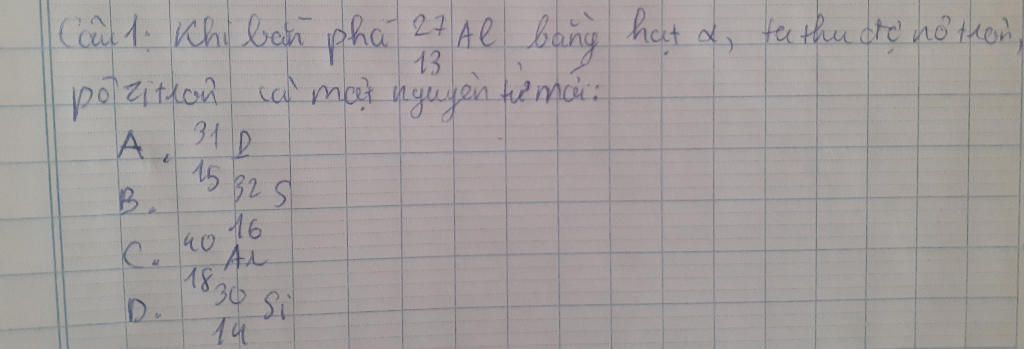 Câu 1: Khi bắn phá 27 Al bằng hạt α, ta thu đc nơtron,
13
pôzitron và một nguyên tử mới:
A. 31 P
15
B. 32 S
16
C. 40 Ar
18
D. 30 Si
14